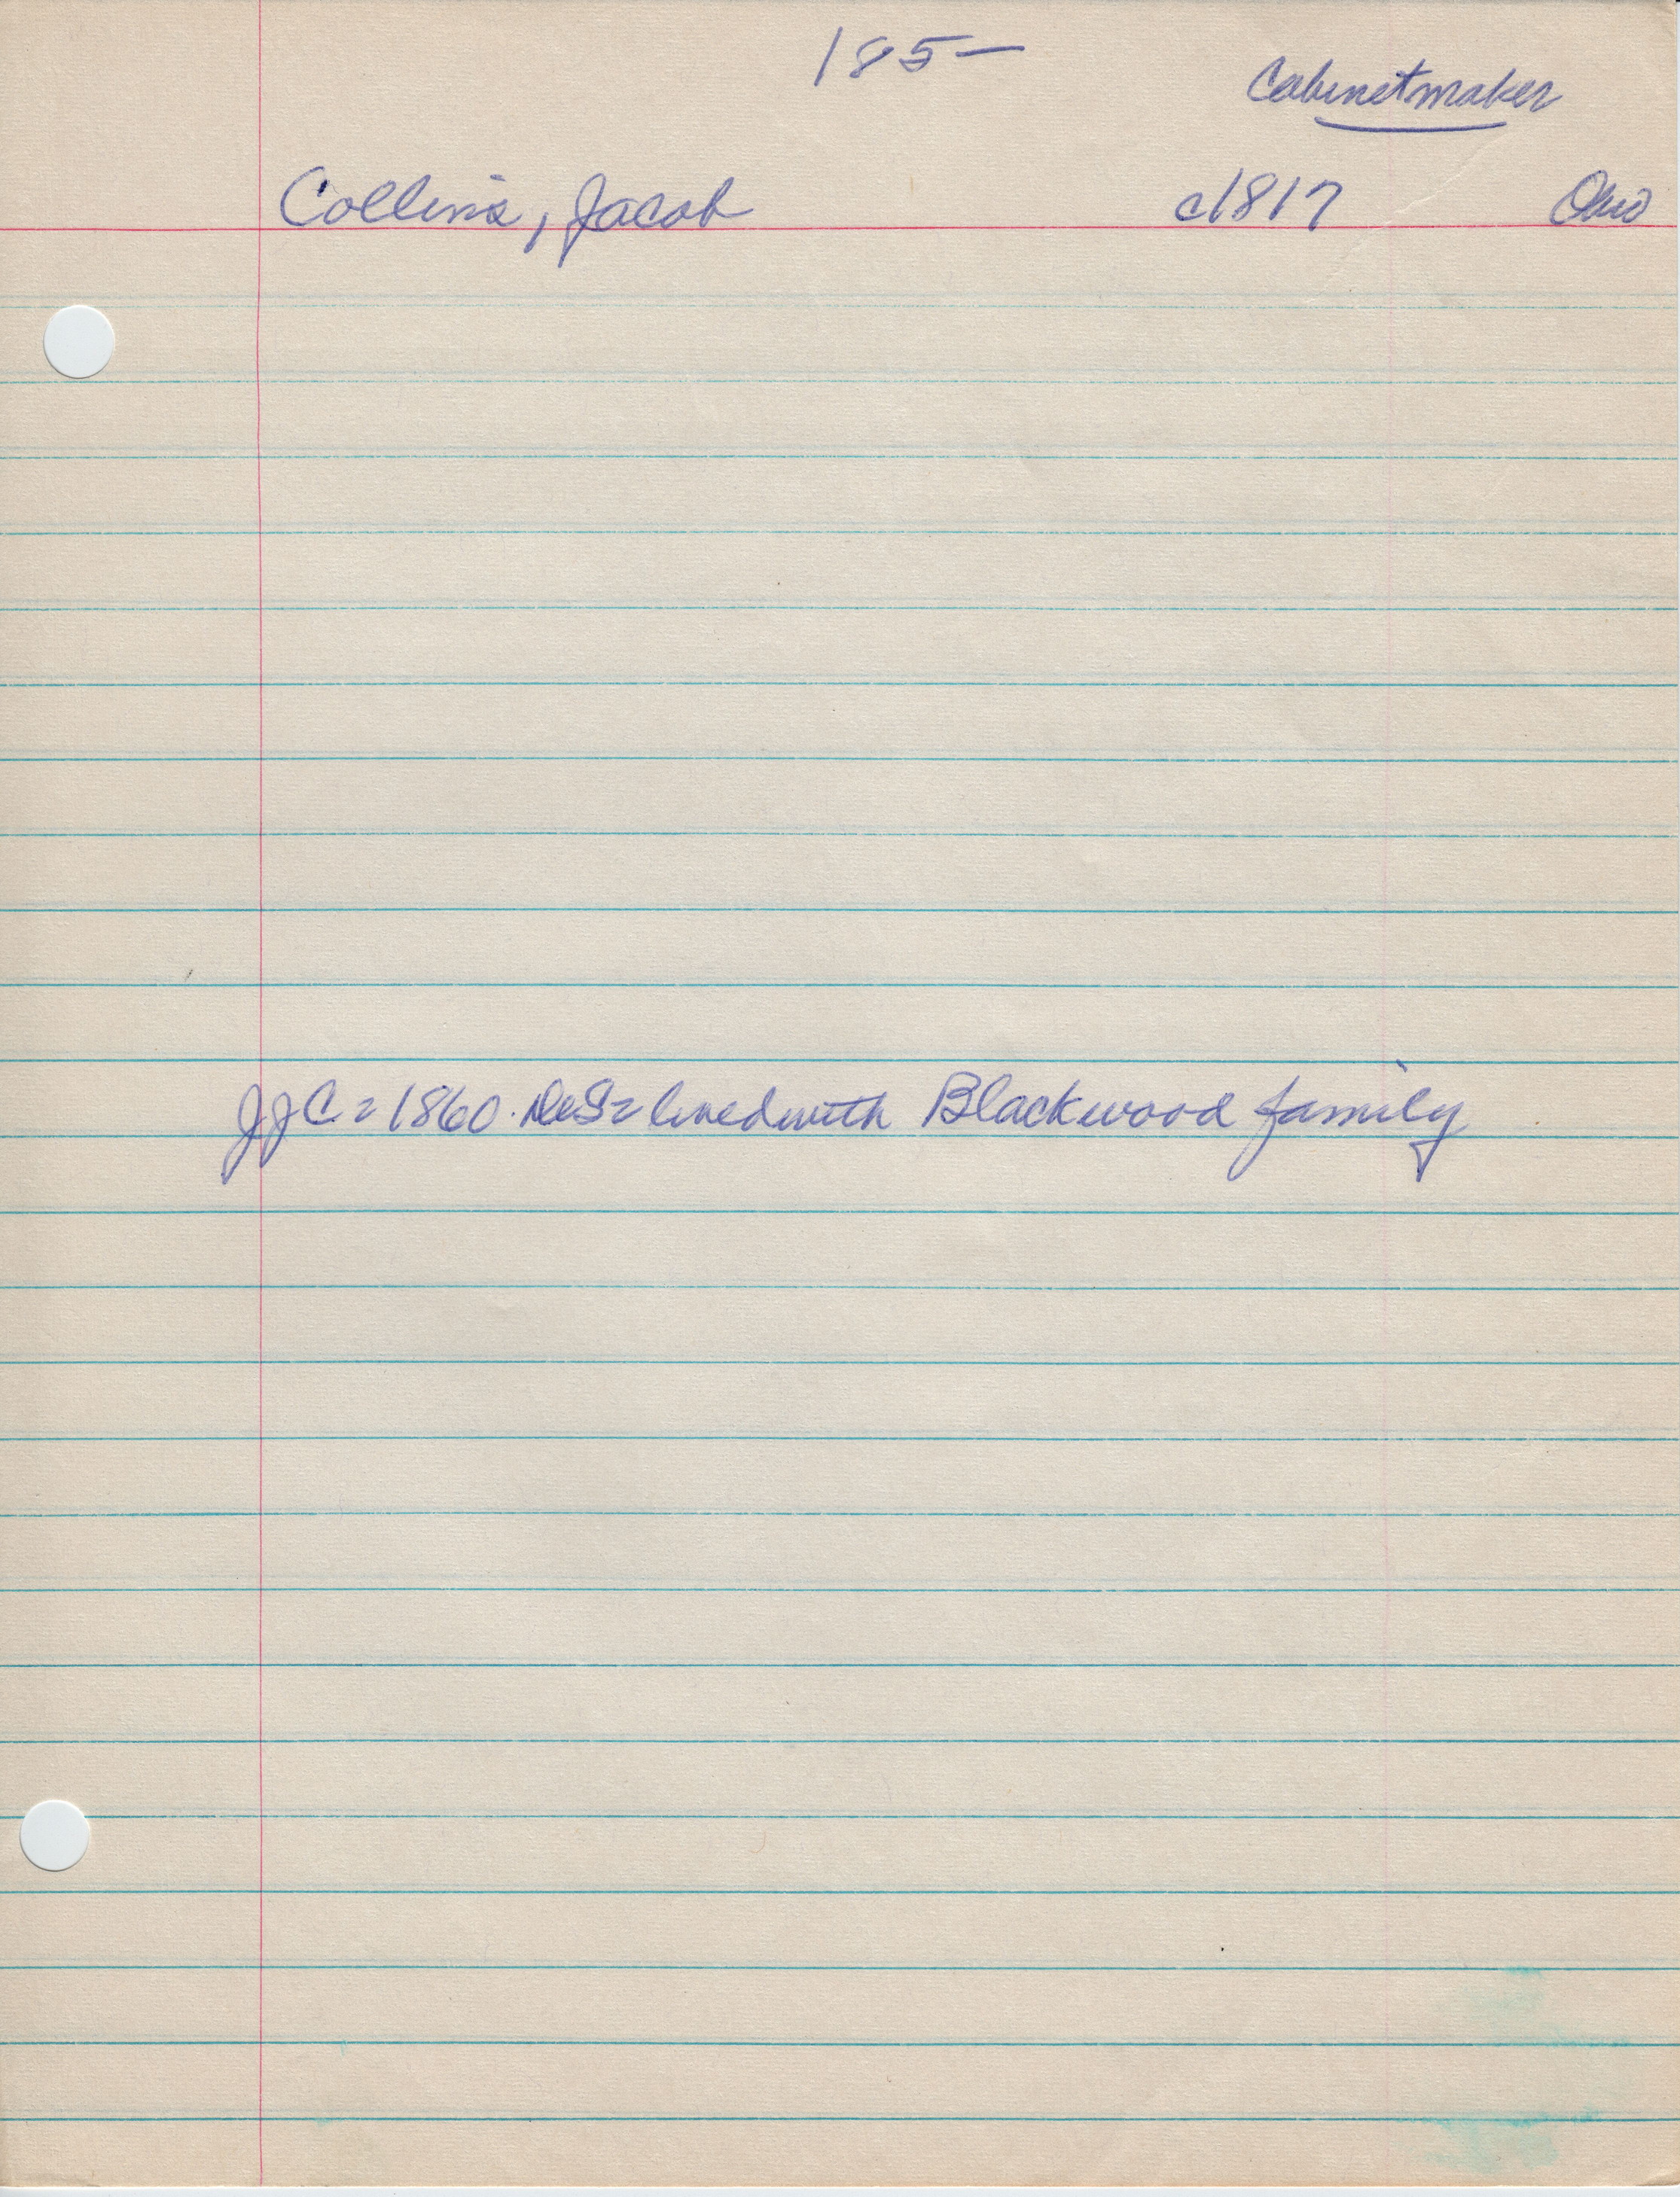 185–
Cabinetmaker
Collins, Jacob c1817 Ohio
JJC = 1860. DeS = lived with Blackwood family